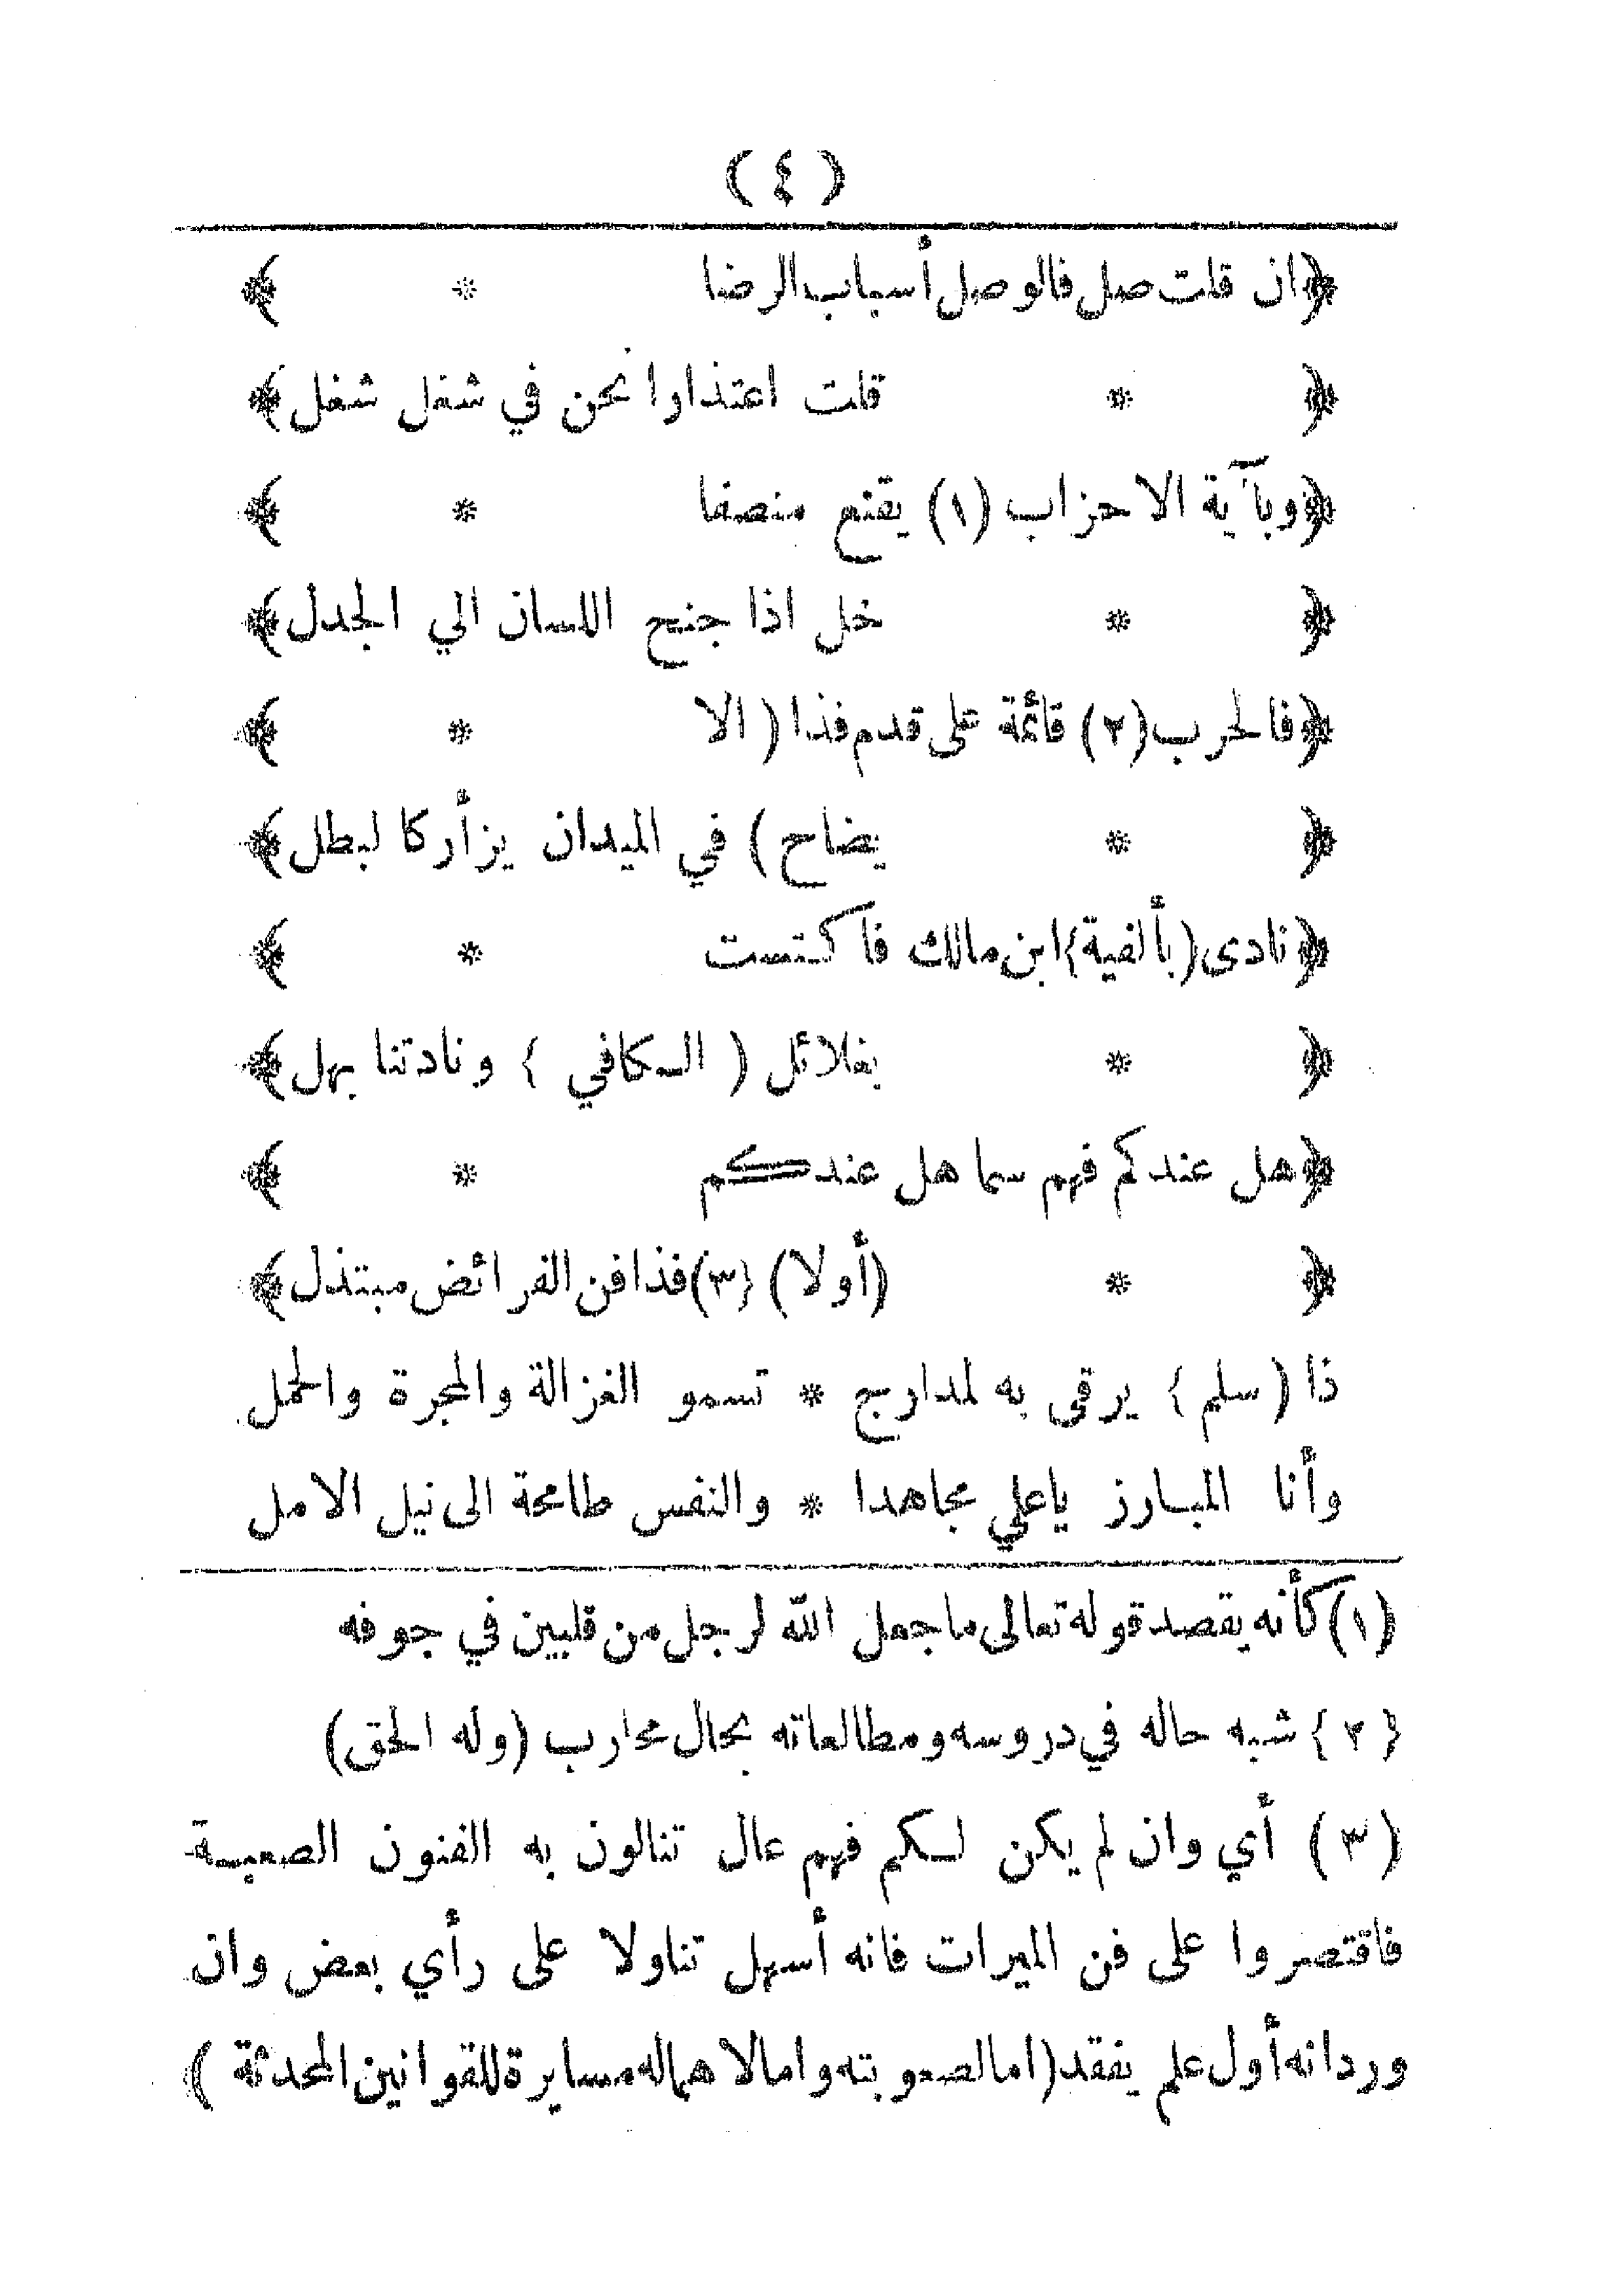 ( ٤ )
﴿ ان قلت صل فالوصل أسباب الرضا * ﴾
﴿ * قلت اعتذاوا نحن في شغل شغل ﴾
﴿ وبآية الاحزاب (١) يقنع منصفا * ﴾
﴿ * خل اذا جنح اللسان الي الجدل ﴾
﴿ فالحرب (٢) قائمة على قدم فذا ( الا * ﴾
﴿ * يضاح ) في الميدان يزأر كالبطل ﴾
﴿ نادى ( بألفية } ابن مالك فاكتست * ﴾
﴿ * بغلائل ( الكافي } ونادتنا بهل ﴾
﴿ هل عندكم فهم سما هل عندكم * ﴾
﴿ * (أولا) {٣) فذا فن الفرائض مبتذل ﴾
ذا ( سلم } يرقى به لمدارج * تسمو الغزالة والمجرة والحمل
وأنا المبارز ياعلي مجاهدا * والنفس طامحة الى نيل الامل
(١) كأنه يقصد قوله تعالى ما جعل الله لرجل من قلبين في جوفه
{ ٢ } شبه حاله في دروسه ومطالعاته بحال محارب (وله الحق)
(٣) أي وان لم يكن لكم فهم عال تنالون به الفنون الصعبة
فاقتصروا على فن الميرات فانه أسهل تناولا على رأي بعض وان
ورد انه أول علم يفقد (اما لصعوبته واما لاهماله مسايرة للقوانين المحدثة )